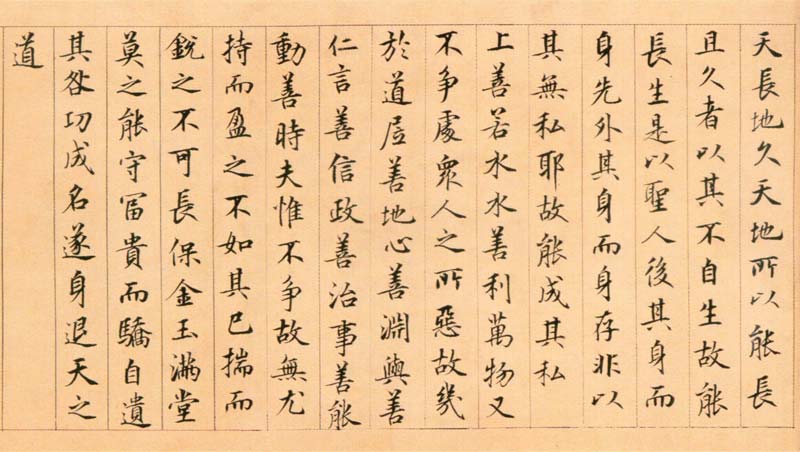 天長地久天地所以能長
且久者以其不自生故能
長生是以聖人後其身而
身先外其身而身存非以
其無私耶故能成其私
上善若水水善利萬物又
不争處衆人之所惡故幾
於道居善地心善淵與善
仁言善信政善治事善能
動善時夫惟不争故無尤
持而盈之不如其已揣而
銳之不可長保金玉滿堂
莫之能守富貴而驕自遺
其咎功成名遂身退天之
道